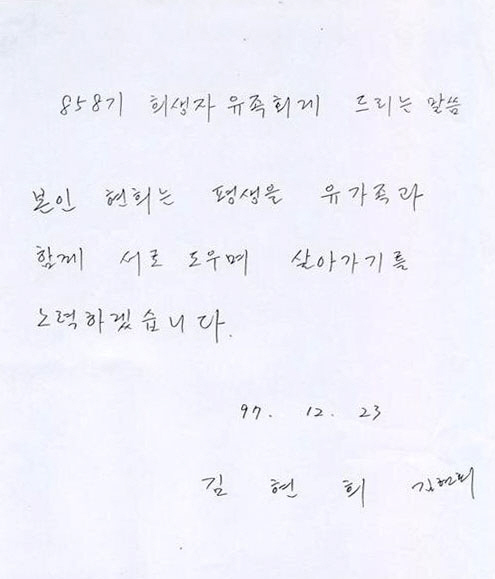 858기 희생자 유족회께 드리는 말씀
본인 현희는 평생을 유가족과
함께 서로 도우며 살아가기를
노력하겠습니다.
97. 12. 23
김 현 희 김현희